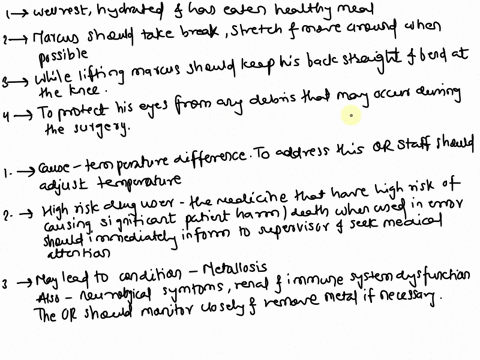 1 → Wellrest, hydrated & has eaten healthy meal
2 → Marcus should take break, stretch & move around when
possible
3 → While lifting marcus should keep his back straight & bend at
the knee.
4 → To protect his eyes from any debris that may occur during
the surgery.
1. → Cause - temperature difference. To address this OR staff should
adjust temperature
2. → High risk drug user - the medicine that have high risk of
causing significant patient harm) death when used in error
should immediately inform to supervisor & seek medical
attention
3 → May lead to condition - Metallosis
Also - neurological symtoms, renal & immune system dysfunction
The OR should monitor closely & remove metal if necessary.